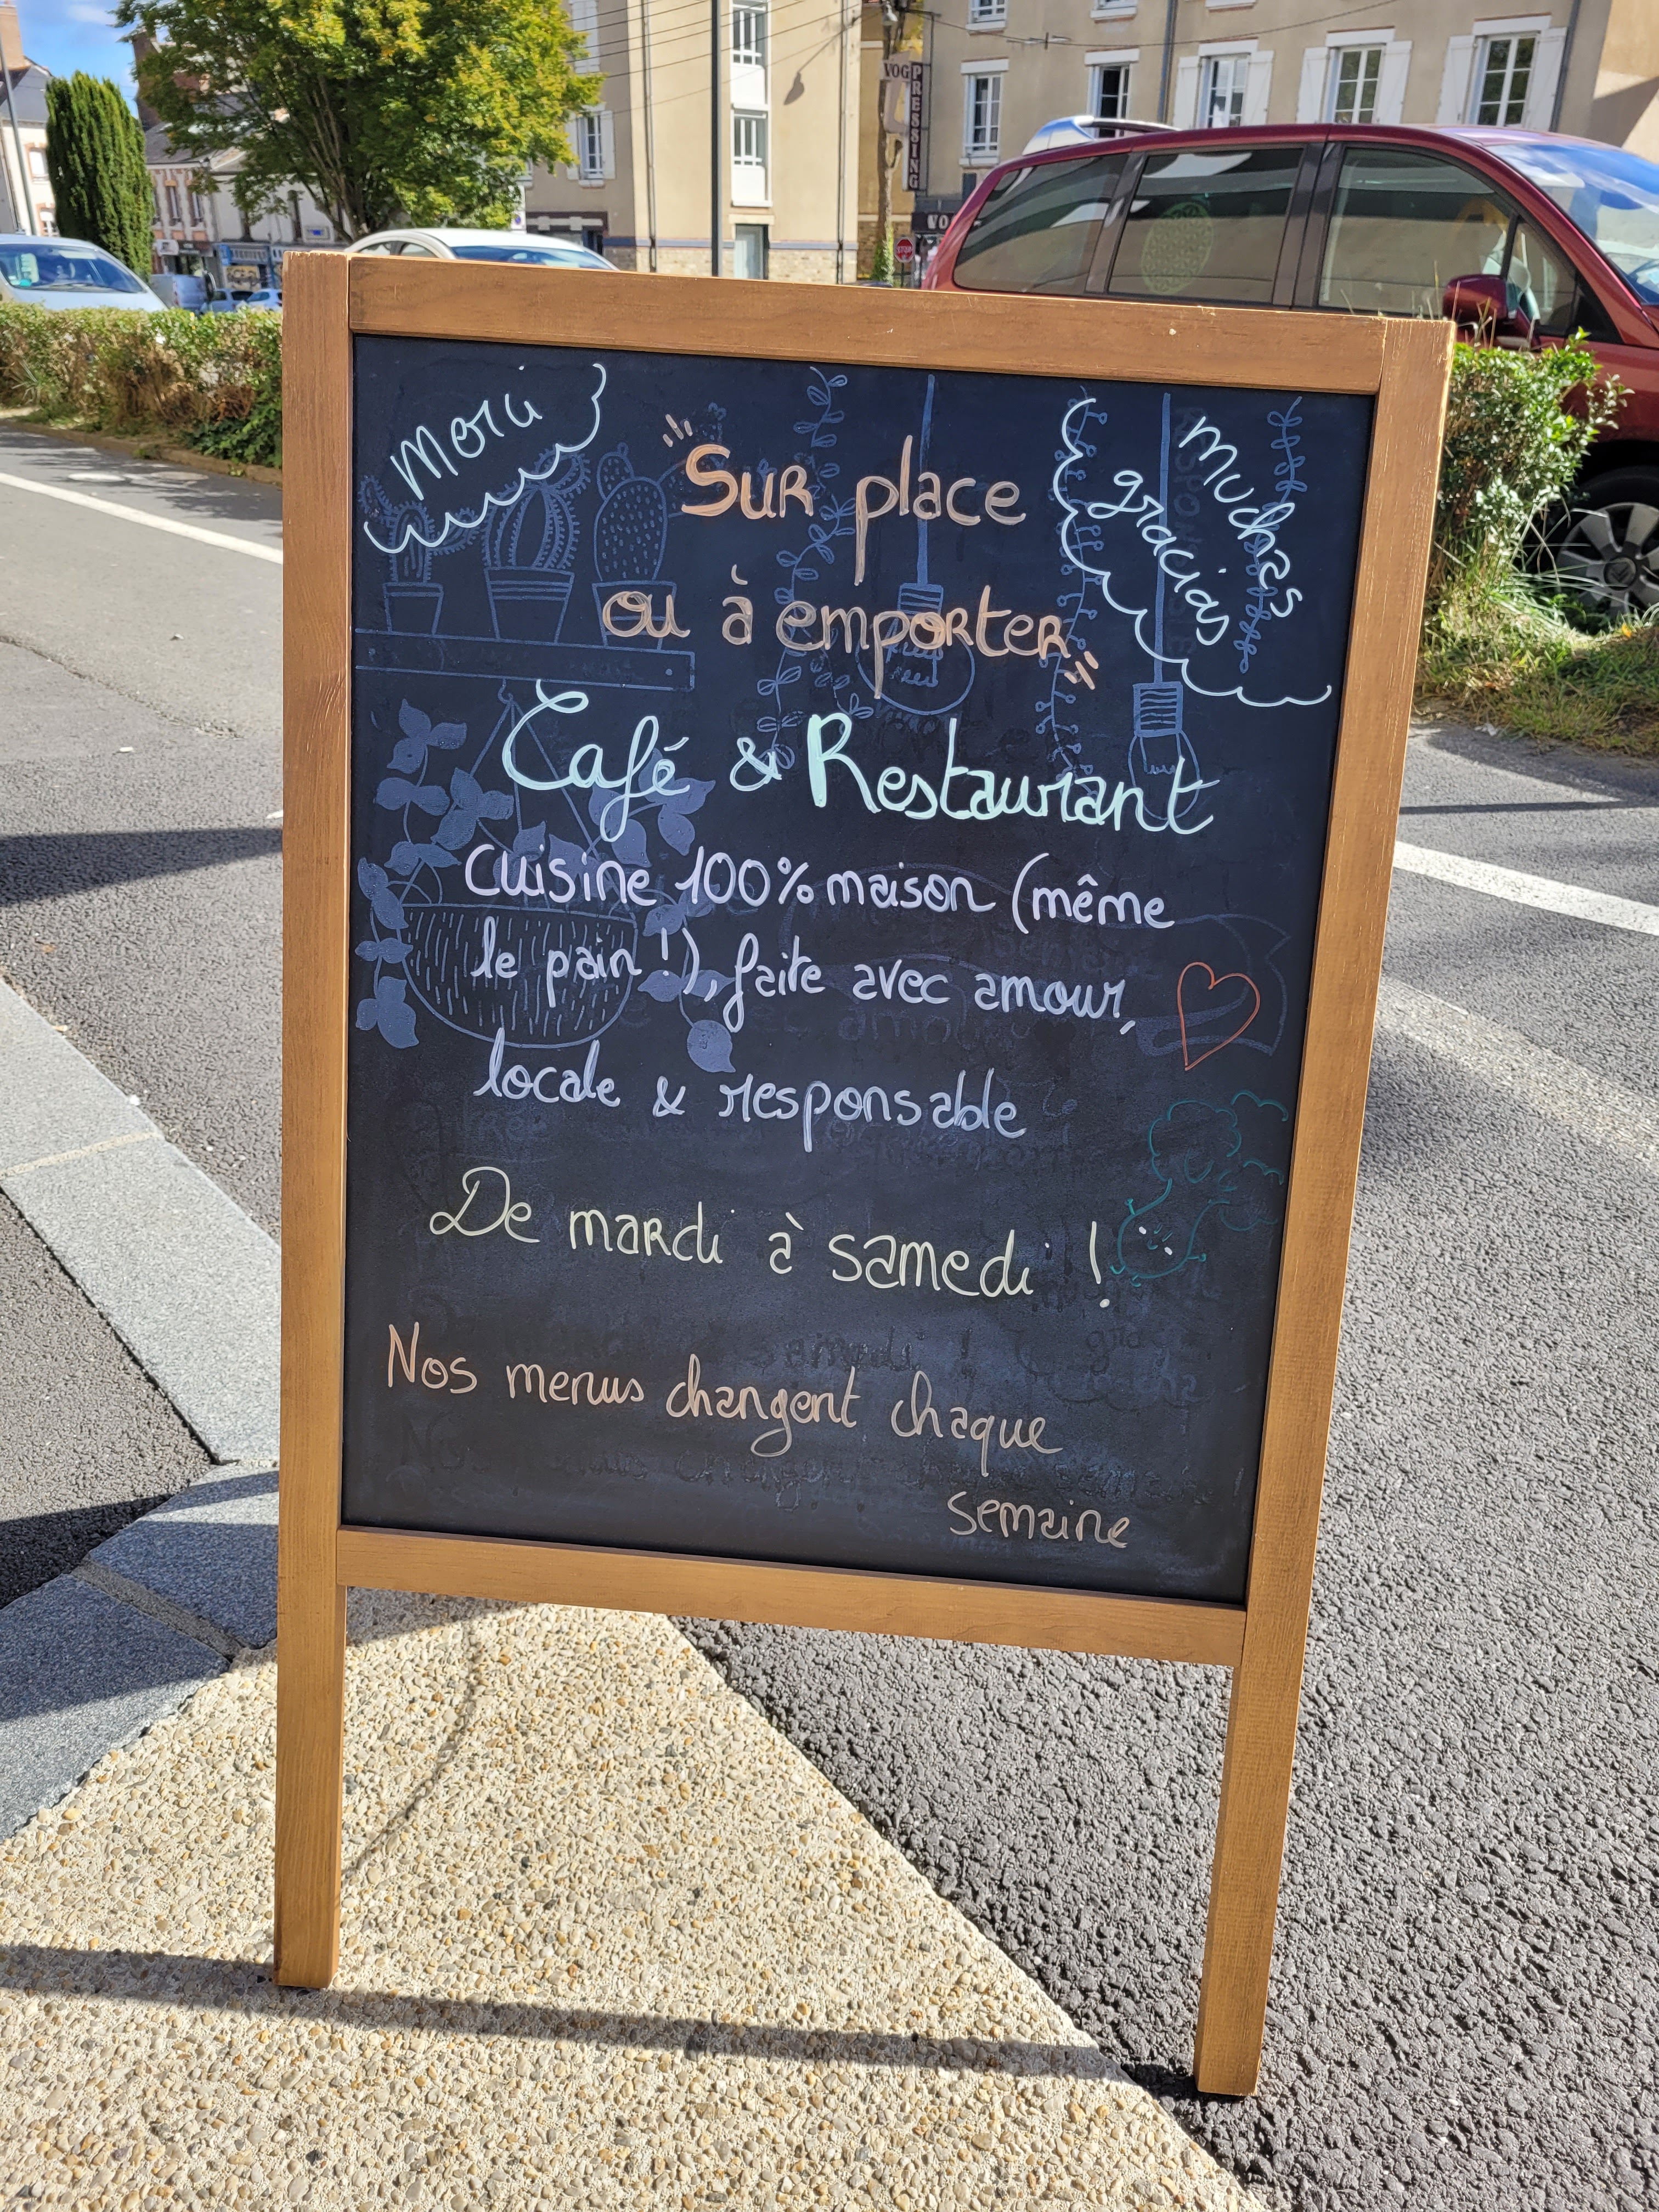 VOG
PRESSING
VO
STOP
Merci
muchas
gracias
Sur place
ou à emporter
Café & Restaurant
Cuisine 100% maison (même
le pain !), faite avec amour,
locale & responsable
De mardi à samedi !
Nos menus changent chaque
semaine